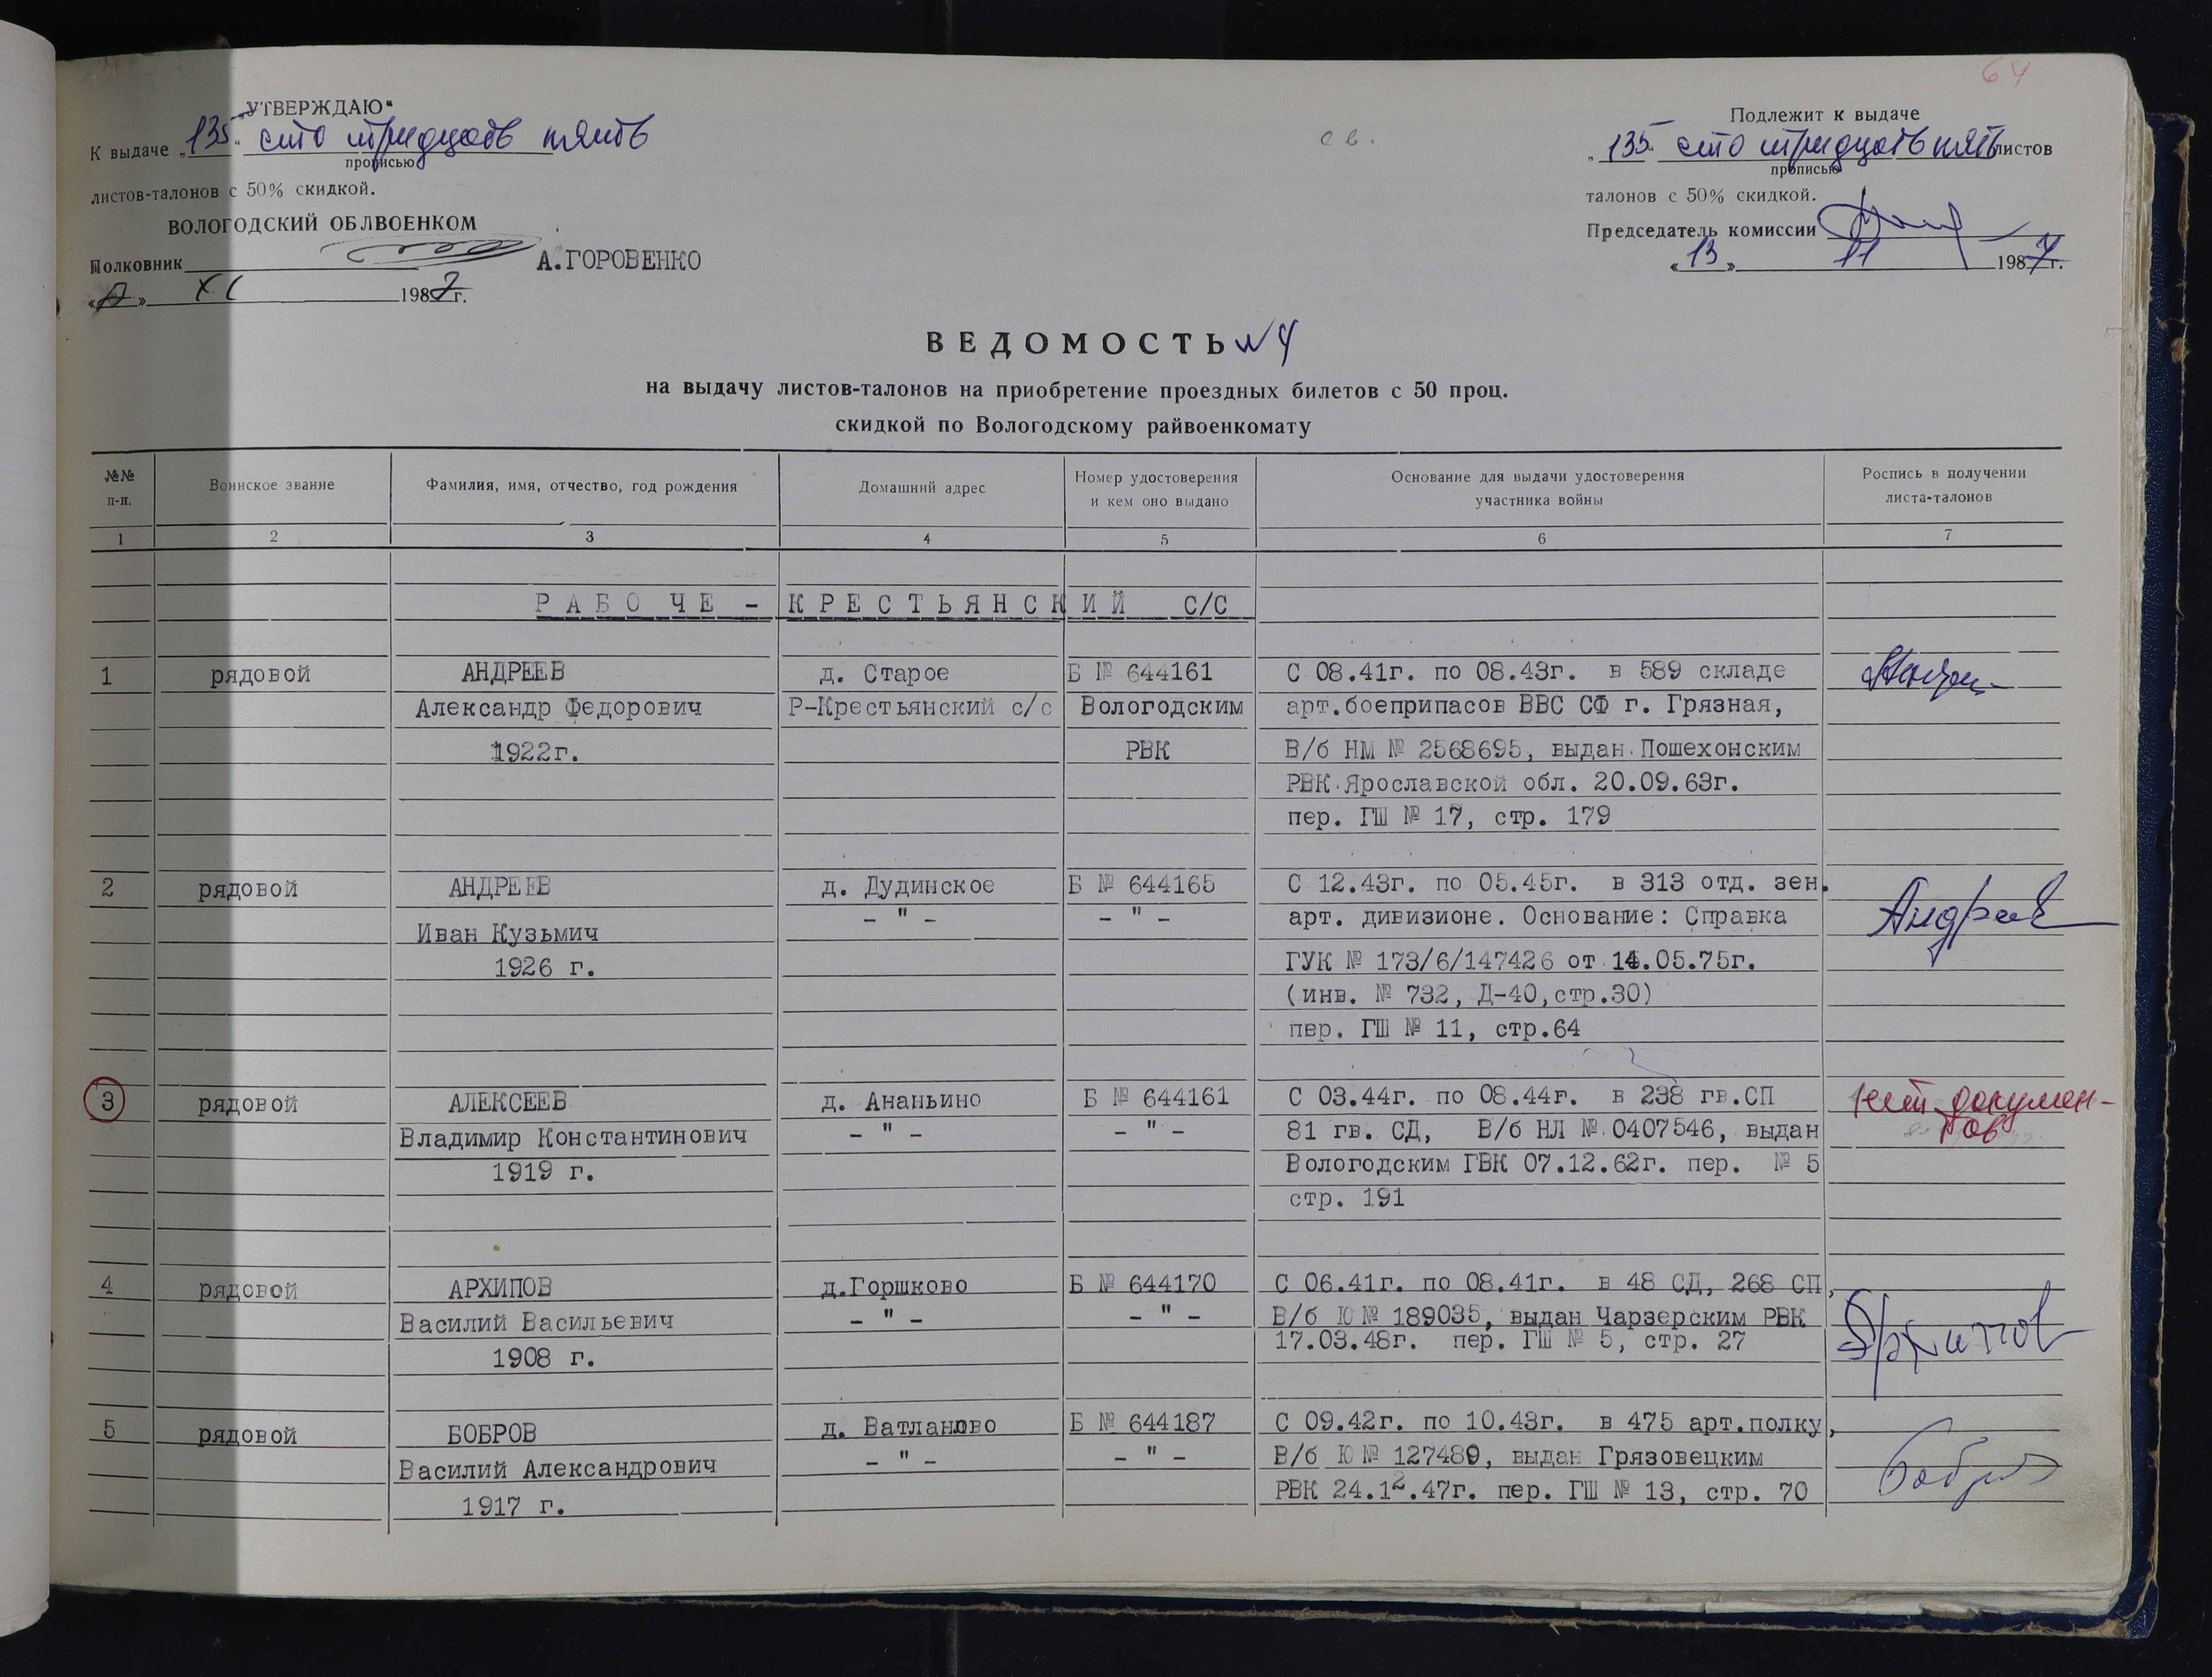 64
„УТВЕРЖДАЮ“
К выдаче „135“ сто тридцать пять
прописью
листов-талонов с 50% скидкой.
ВОЛОГОДСКИЙ ОБЛВОЕНКОМ
Полковник А.ГОРОВЕНКО
XI 1987г.
с в.
Подлежит к выдаче
„135“ сто тридцать пять листов
прописью
талонов с 50% скидкой.
Председатель комиссии
«13» 11 1987г.
ВЕДОМОСТЬ № 4
на выдачу листов-талонов на приобретение проездных билетов с 50 проц.
скидкой по Вологодскому райвоенкомату
№№ п-п. Воинское звание Фамилия, имя, отчество, год рождения Домашний адрес Номер удостоверения и кем оно выдано Основание для выдачи удостоверения участника войны Роспись в получении листа-талонов
1 2 3 4 5 6 7
РАБОЧЕ - КРЕСТЬЯНСКИЙ С/С
1 рядовой АНДРЕЕВ д. Старое Б № 644161 С 08.41г. по 08.43г. в 589 складе
Александр Федорович Р-Крестьянский с/с Вологодским арт.боеприпасов ВВС СФ г. Грязная,
1922г. РВК В/б НМ № 2568695, выдан Пошехонским
РВК Ярославской обл. 20.09.63г.
пер. ГШ № 17, стр. 179
2 рядовой АНДРЕЕВ д. Дудинское Б № 644165 С 12.43г. по 05.45г. в 313 отд. зен.
- " - - " - арт. дивизионе. Основание: Справка Андреев
Иван Кузьмич
1926 г. ГУК № 173/6/147426 от 14.05.75г.
(инв. № 732, Д-40,стр.30)
пер. ГШ № 11, стр.64
3 рядовой АЛЕКСЕЕВ д. Ананьино Б № 644161 С 03.44г. по 08.44г. в 238 гв.СП нет докумен-
Владимир Константинович - " - - " - 81 гв. СД, В/б НЛ № 0407546, выдан тов
1919 г. Вологодским ГВК 07.12.62г. пер. № 5
стр. 191
4 рядовой АРХИПОВ д.Горшково Б № 644170 С 06.41г. по 08.41г. в 48 СД, 268 СП,
Василий Васильевич - " - - " - В/б Ю № 189035, выдан Чарзерским РВК Архипов
1908 г. 17.03.48г. пер. ГШ № 5, стр. 27
5 рядовой БОБРОВ д. Ватланово Б № 644187 С 09.42г. по 10.43г. в 475 арт.полку,
Василий Александрович - " - - " - В/б Ю № 127489, выдан Грязовецким Бобров
1917 г. РВК 24.12.47г. пер. ГШ № 13, стр. 70